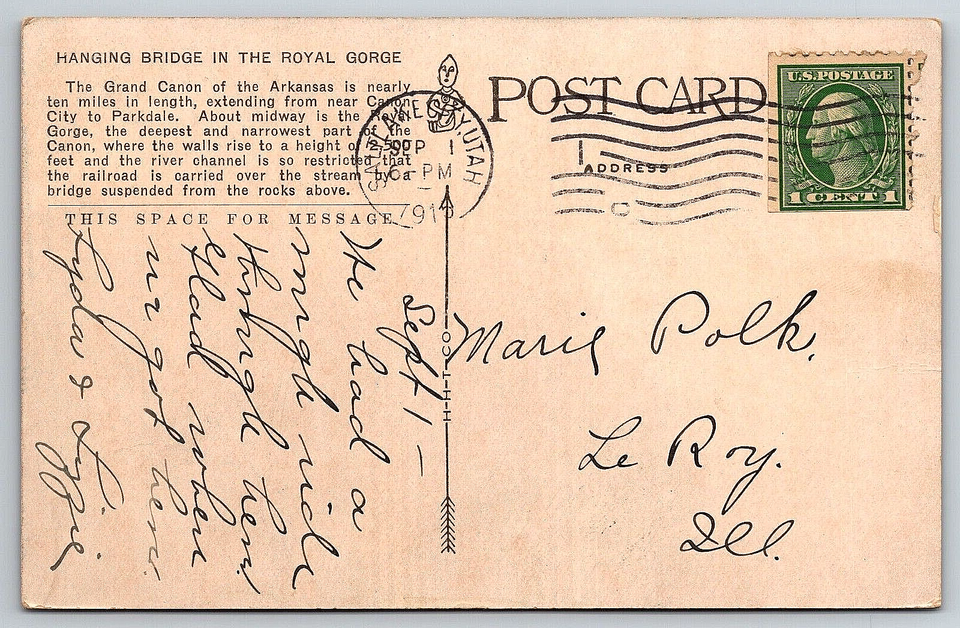 HANGING BRIDGE IN THE ROYAL GORGE
The Grand Canon of the Arkansas is nearly
ten miles in length, extending from near Canon
City to Parkdale. About midway is the Royal
Gorge, the deepest and narrowest part of the
Canon, where the walls rise to a height of 2,500
feet and the river channel is so restricted that
the railroad is carried over the stream by a
bridge suspended from the rocks above.
THIS SPACE FOR MESSAGE
POST CARD
ADDRESS
U.S. POSTAGE
1 CENT 1
SALT LAKE CITY, UTAH
SEP 1
PM
191
H-H-T-CO.
Sept 1 —
We had a
rough ride
through here
Glad when
we got here
Lyda &
Marie Polk.
Le Roy.
Ill.